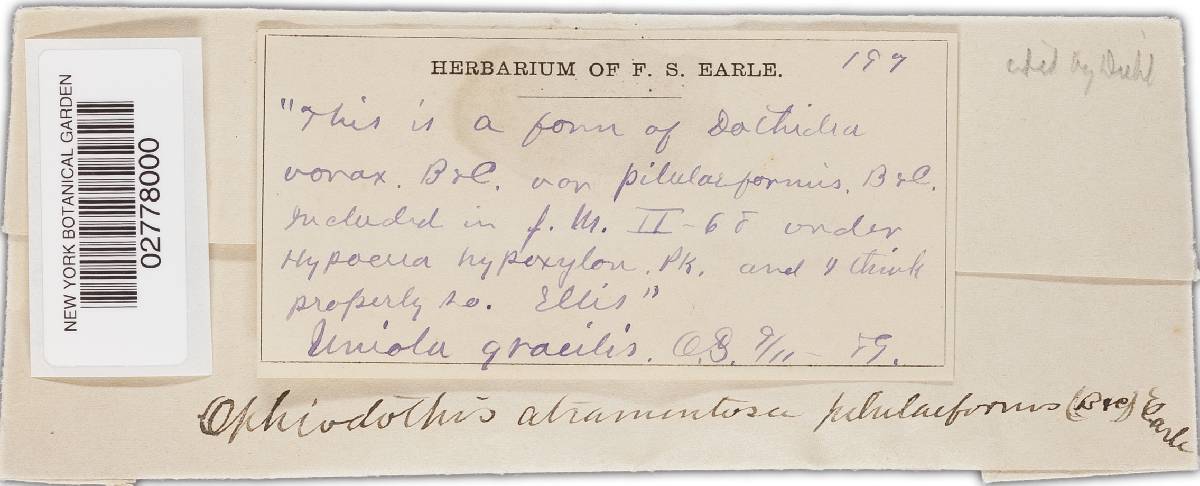 NEW YORK BOTANICAL GARDEN
02778000
HERBARIUM OF F. S. EARLE.
189
"This is a form of Dothidea
vorax. B&C. var pilulaeformis. B&C.
Included in J. M. II-68 under
Hypocrea hypoxylon. PK. and I think
properly so. Ellis"
Uniola gracilis. O.S. 9/11 - 89.
cited by Diehl
Ophiodothis atramentosa pilulaeformis (B&C) Earle